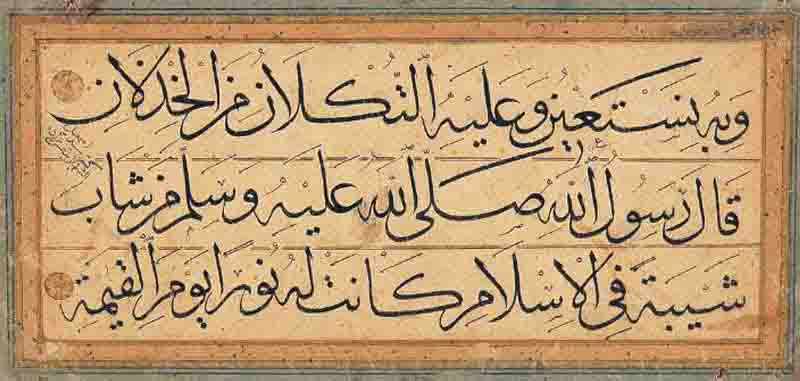 وَبِهِ نَسْتَعِينُ وَعَلَيْهِ التُّكْلَانُ مِنَ الْخِذْلَانِ
قَالَ رَسُولُ اللهِ صَلَّى اللهُ عَلَيْهِ وَسَلَّمَ مَنْ شَابَ
شَيْبَةً فِي الْإِسْلَامِ كَانَتْ لَهُ نُورًا يَوْمَ الْقِيٰمَةِ